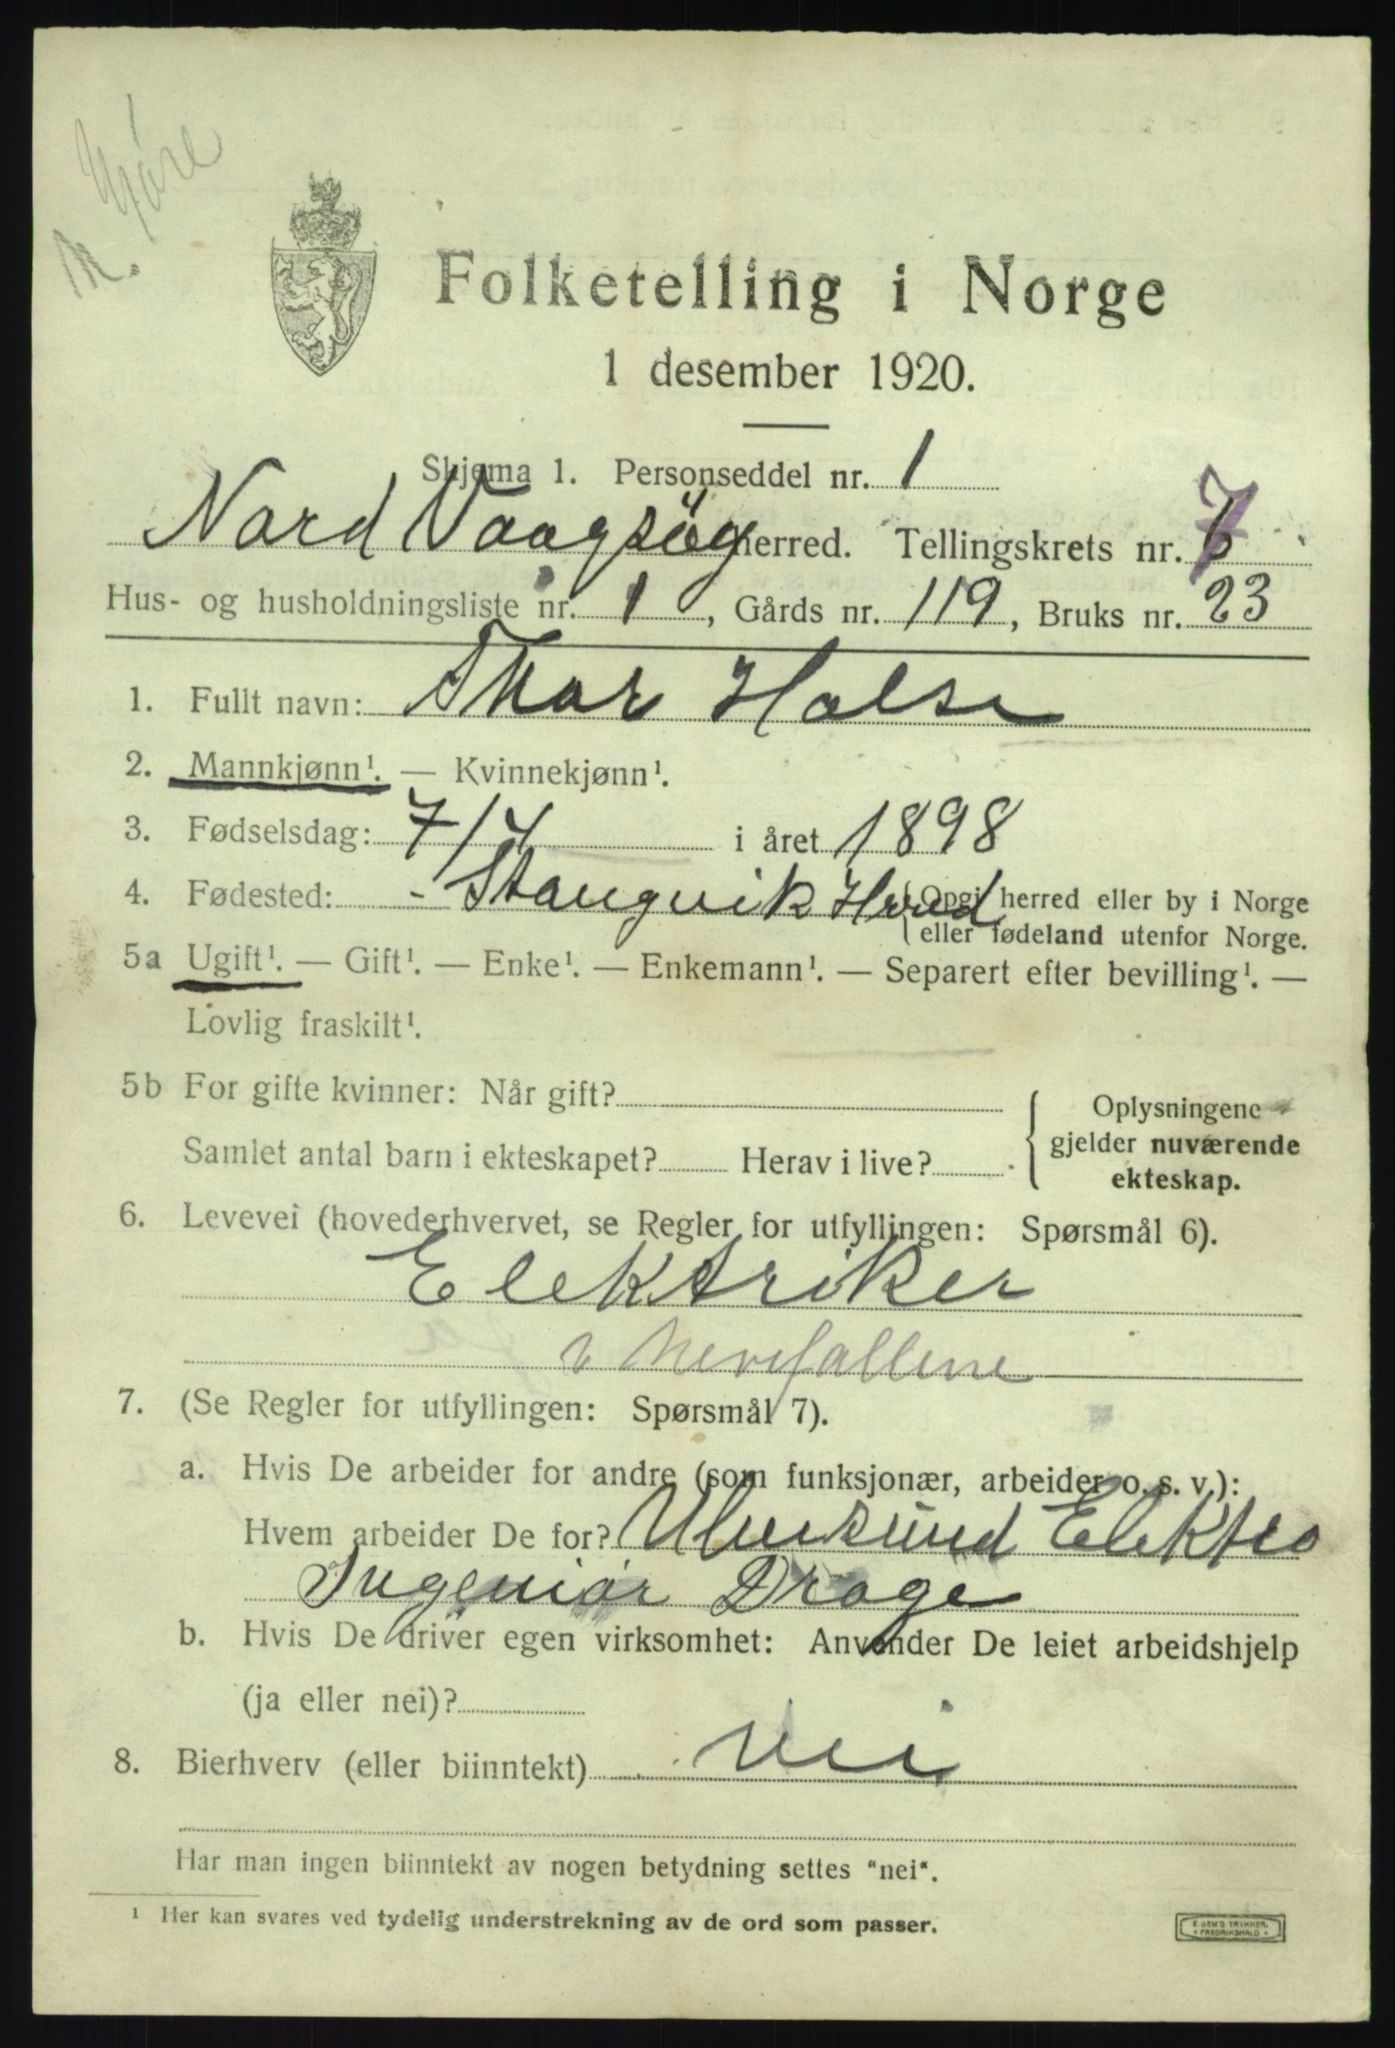 M. Møre
Folketelling i Norge
1 desember 1920.
Skjema 1. Personseddel nr. 1
Nord Vaagsöy herred. Tellingskrets nr. 6 7
Hus- og husholdningsliste nr. 1, Gårds nr. 119, Bruks nr. 23
1. Fullt navn: Thor Halse
2. Mannkjønn¹. — Kvinnekjønn¹.
3. Fødselsdag: 7/4 i året 1898
4. Fødested: - Stangvik Hred { Opgi herred eller by i Norge
eller fødeland utenfor Norge.
5a Ugift¹. — Gift¹. — Enke¹. — Enkemann¹. — Separert efter bevilling¹. —
Lovlig fraskilt¹.
5b For gifte kvinner: Når gift?
Samlet antal barn i ekteskapet? Herav i live?
{ Oplysningene
gjelder nuværende
ekteskap.
6. Levevei (hovederhvervet, se Regler for utfyllingen: Spørsmål 6).
Elektriker
7. (Se Regler for utfyllingen: Spørsmål 7).
a. Hvis De arbeider for andre (som funksjonær, arbeider o. s. v.):
Hvem arbeider De for? Ulvesund Elektro
Ingeniør Drage
b. Hvis De driver egen virksomhet: Anvender De leiet arbeidshjelp
(ja eller nei)?
8. Bierhverv (eller biinntekt) Nei
Har man ingen biinntekt av nogen betydning settes "nei".
¹ Her kan svares ved tydelig understrekning av de ord som passer.
E. SEM'S TRYKKERI
FREDRIKSHALD